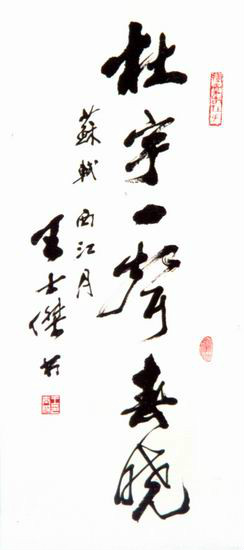 杜宇一聲春曉
蘇軾 西江月
王士傑